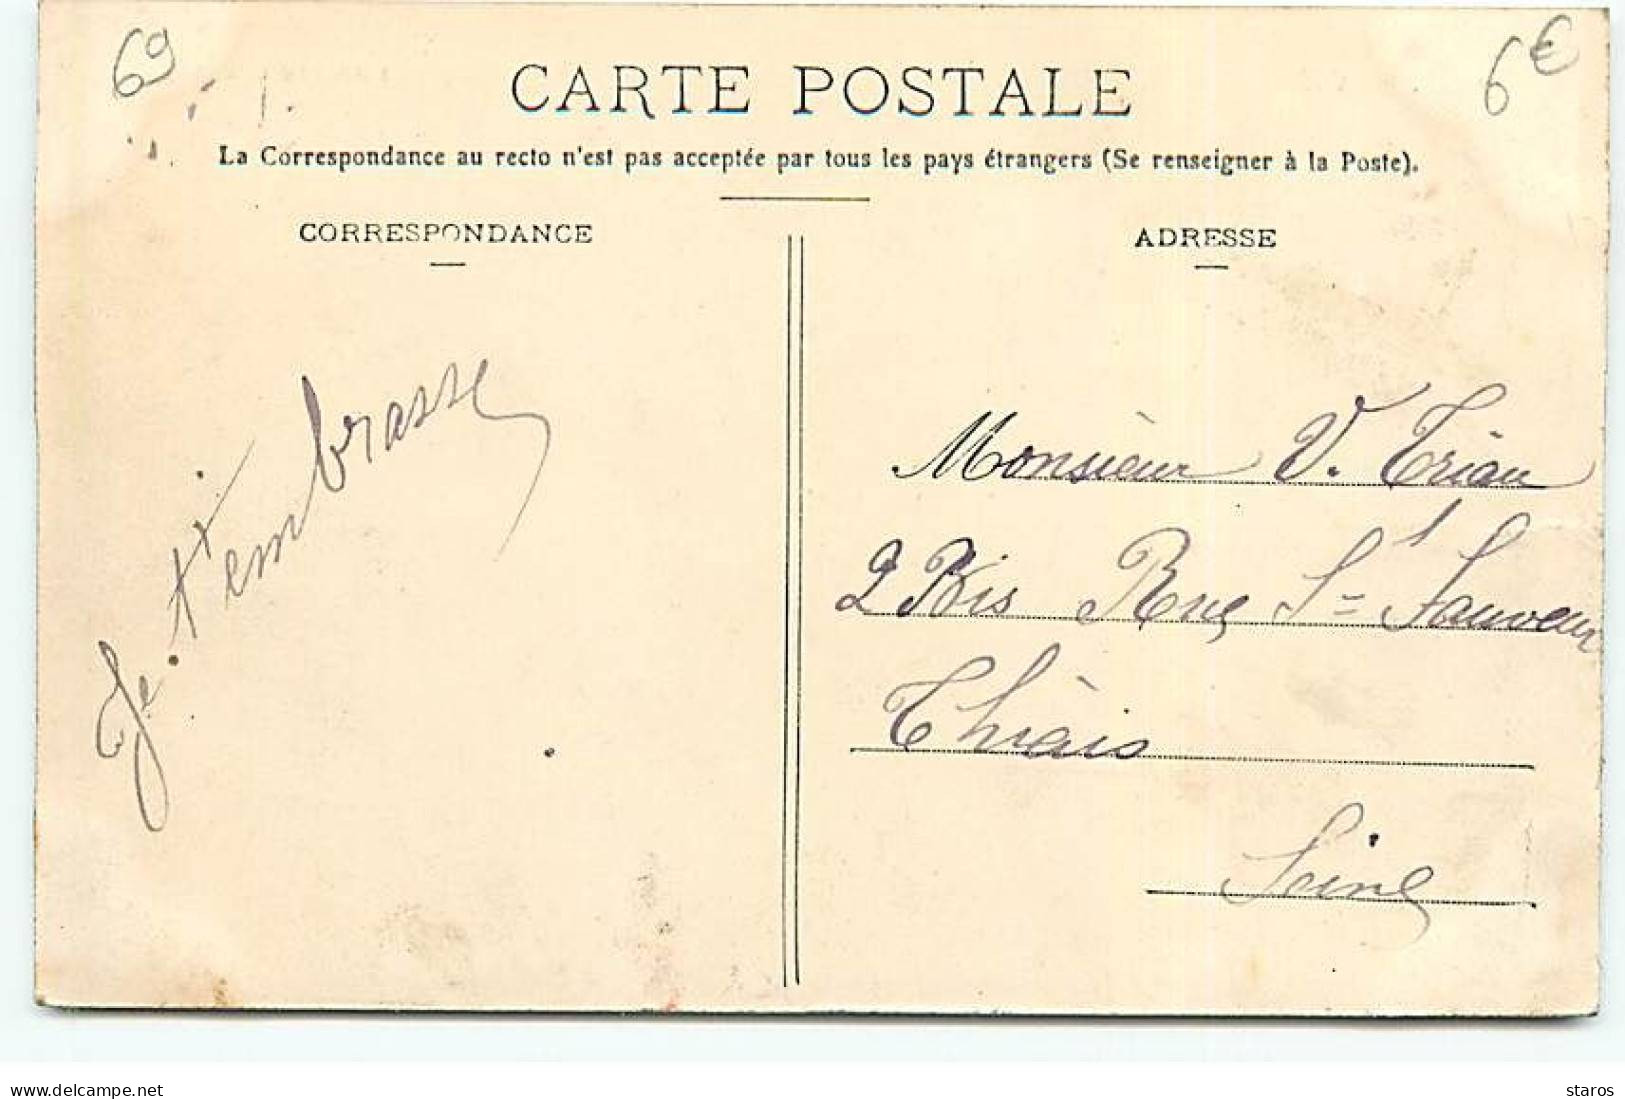 69
6€
CARTE POSTALE
La Correspondance au recto n'est pas acceptée par tous les pays étrangers (Se renseigner à la Poste).
CORRESPONDANCE
ADRESSE
Je t'embrasse
Monsieur V. Triau
2 Bis Rue St Sauveur
Thiais
Seine
www.delcampe.net
staros